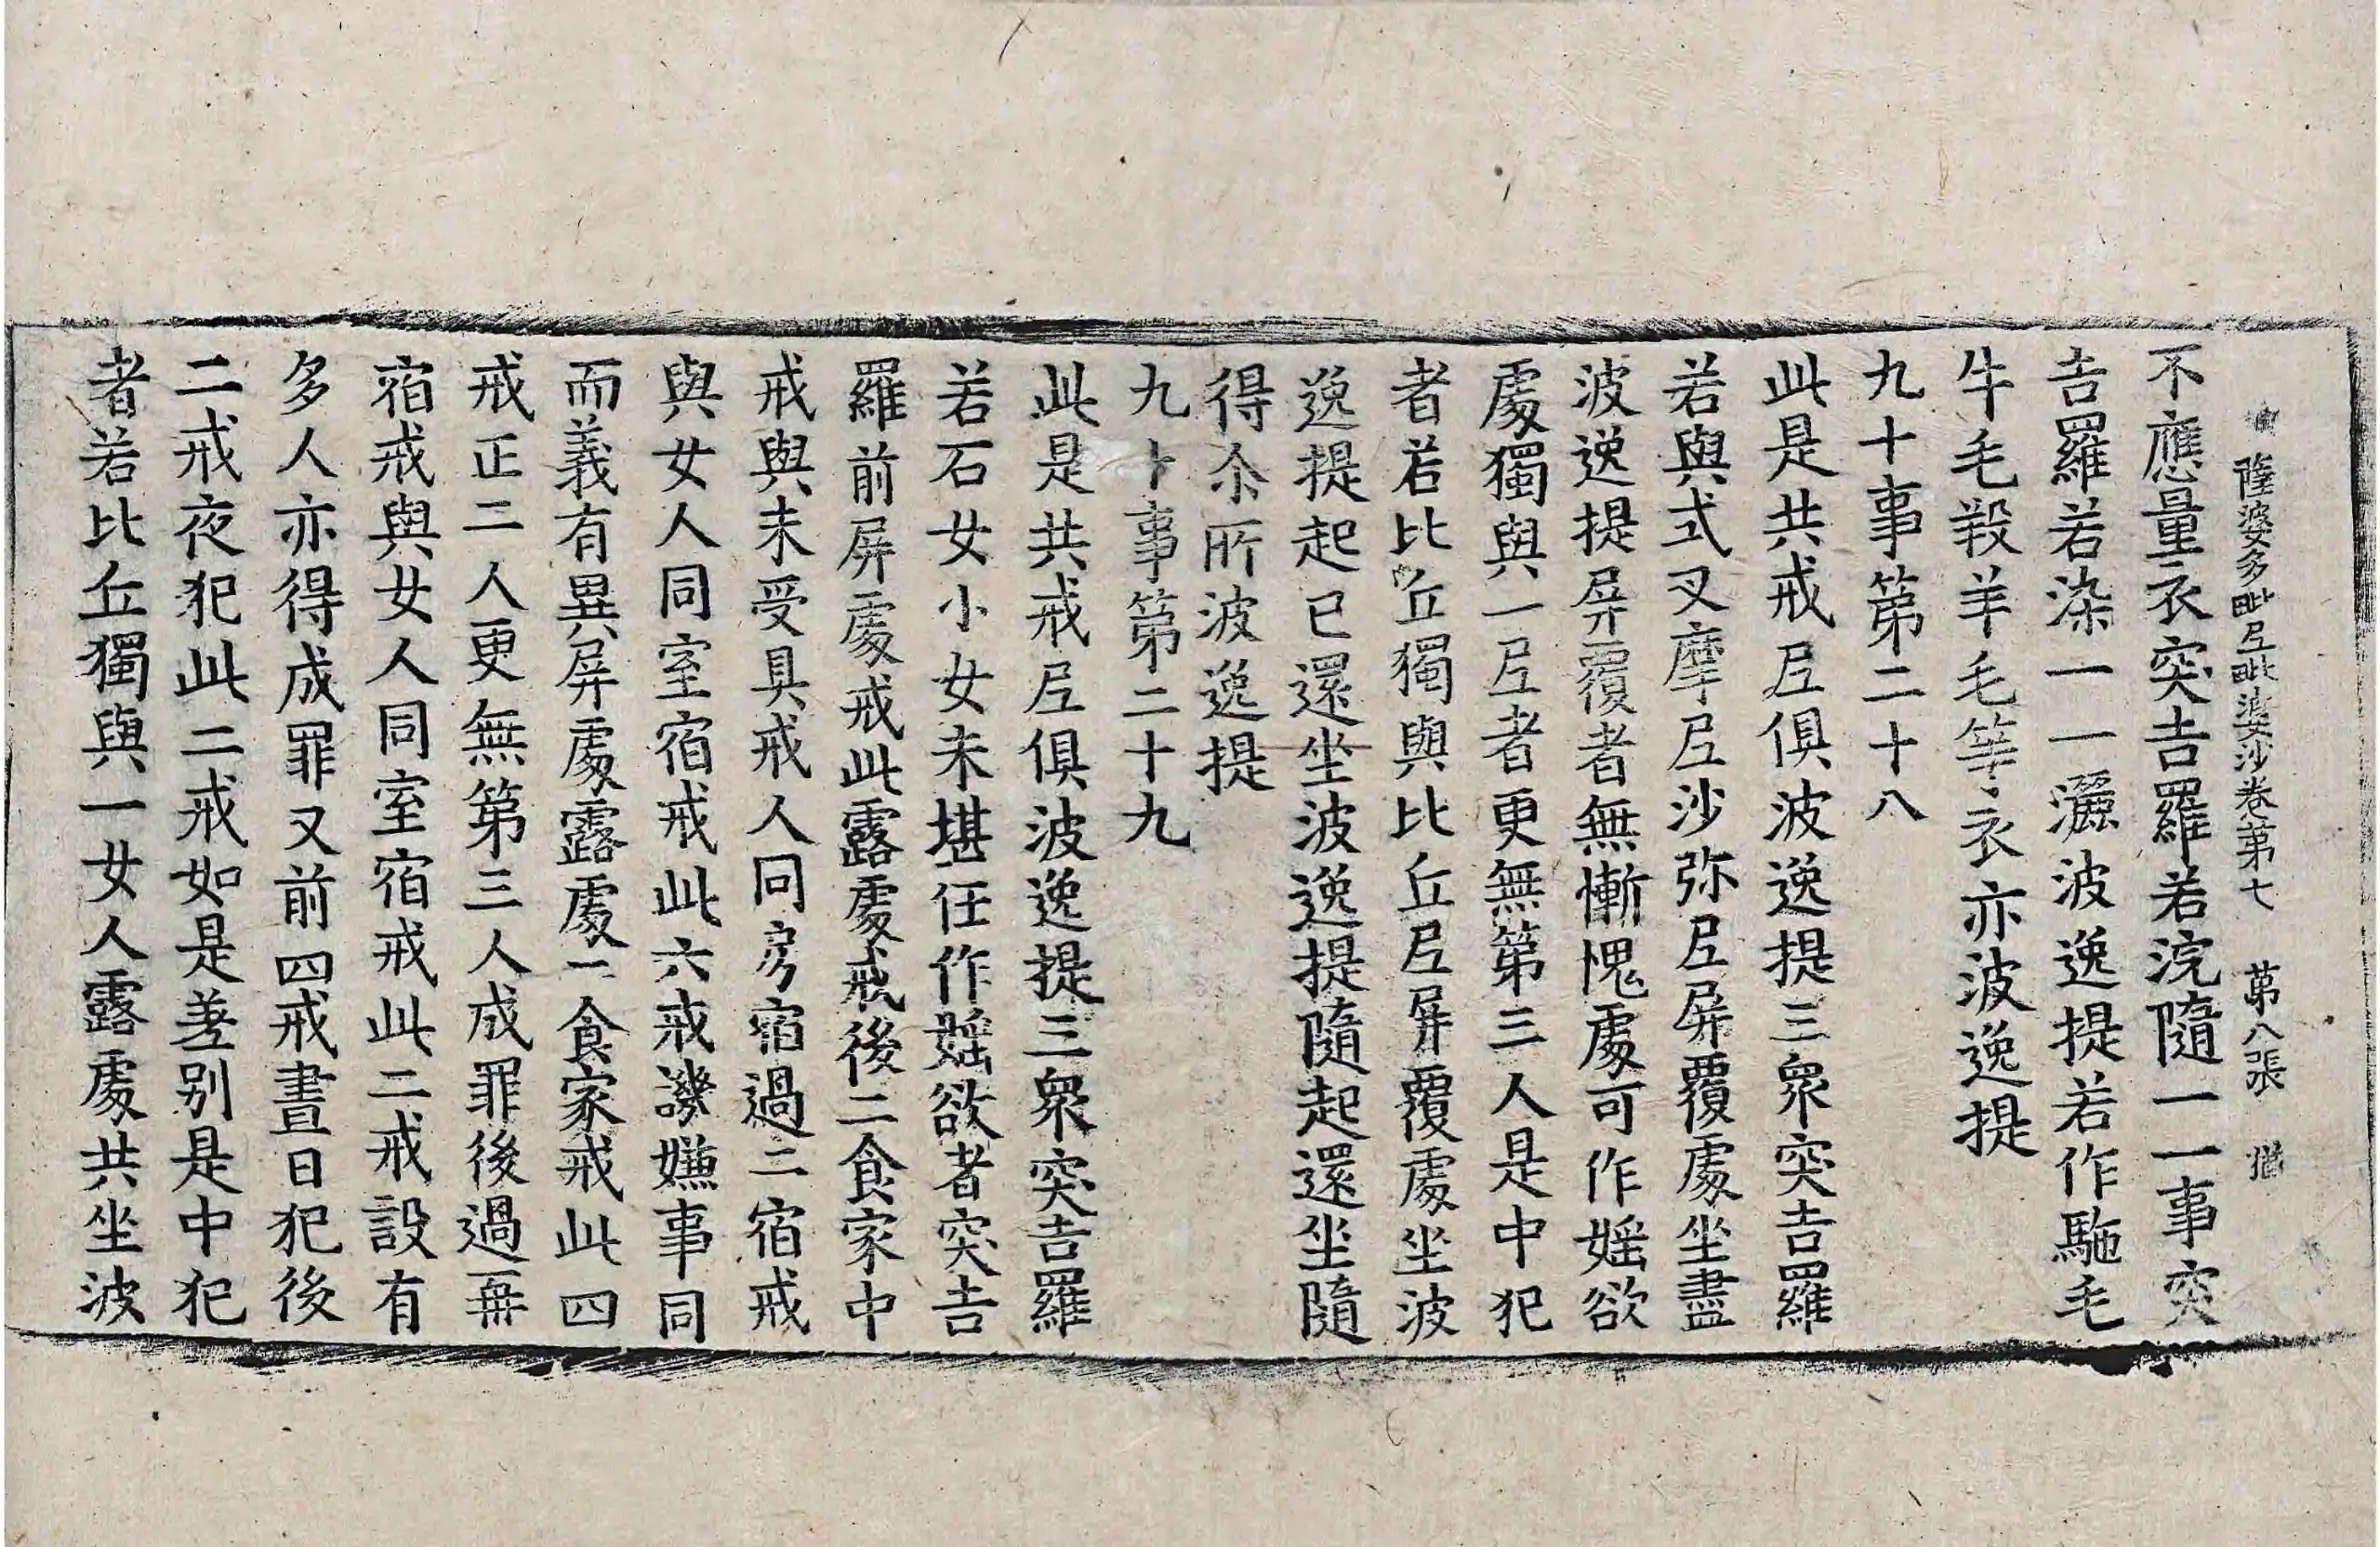 薩婆多毗尼毗婆沙卷第七　第八張　猶
不應量衣突吉羅若浣隨一一事突
吉羅若染一一灑波逸提若作駞毛
牛毛羖羊毛等衣亦波逸提
九十事第二十八
此是共戒尼俱波逸提三衆突吉羅
若與式叉摩尼沙弥尼屏覆處坐盡
波逸提屏覆者無慚愧處可作婬欲
處獨與一尼者更無第三人是中犯
者若比丘獨與比丘尼屏覆處坐波
逸提起已還坐波逸提隨起還坐隨
得尒所波逸提
九十事第二十九
此是共戒尼俱波逸提三衆突吉羅
若石女小女未堪任作婬欲者突吉
羅前屏處戒此露處戒後二食家中
戒與未受具戒人同房宿過二宿戒
與女人同室宿戒此六戒譏嫌事同
而義有異屏處露處二食家戒此四
戒正二人更無第三人成罪後過再
宿戒與女人同室宿戒此二戒設有
多人亦得成罪又前四戒晝日犯後
二戒夜犯此二戒如是差别是中犯
者若比丘獨與一女人露處共坐波